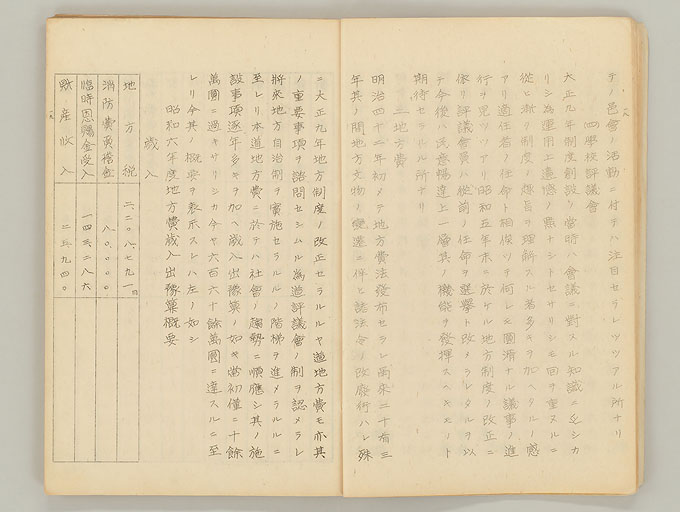 テノ邑會ノ活動ニ付テハ注目セラレツツアル所ナリ
四學校評議會
大正九年制度創設ノ當時ハ會議ニ對スル知識ニ乏シカ
リシ為運用上遺憾ノ點ナシトセサリシモ回ヲ重ヌルニ
從ヒ漸ク制度ノ趣旨ヲ理解スル者多キヲ加ヘタルノ感
アリ適任者ノ任命ト相俟ツテ何レモ圓滿ナル議事ノ進
行ヲ見ツツアリ昭和五年末ニ於ケル地方制度ノ改正ニ
依リ評議會員ハ從前ノ任命ヲ選擧ト改メラレタルヲ以
テ今後ハ民意暢達上一層其ノ機能ヲ發揮スヘキモノト
期待セラルル所ナリ
二地方費
明治四十二年初メテ地方費法發布セラレ爾來二十有三
年其ノ間地方文物ノ變遷ニ伴ヒ諸法令ノ改廢行ハレ殊
ニ大正九年地方制度ノ改正セラルルヤ道地方費モ亦其
ノ重要事項ヲ諮問セシムル為道評議會ノ制ヲ認メラレ
將來地方自治制ヲ實施セラルルノ階梯ヲ進メラルルニ
至レリ本道地方費ニ於テハ社會ノ趨勢ニ順應シ其ノ施
設事項逐年多キヲ加ヘ歲入出豫算ノ如キ當初僅ニ十餘
萬圓ニ過キサリシカ今ヤ六百六十餘萬圓ニ達スルニ至
レリ今其ノ概要ヲ表示スレハ左ノ如シ
昭和六年度地方費歲入出豫算概要
歲入
地方稅 二、二〇八、七九一円
消防費寄附金 八〇、〇〇〇
臨時恩賜金受入 一四三、二八六
財産收入 二五、九四〇